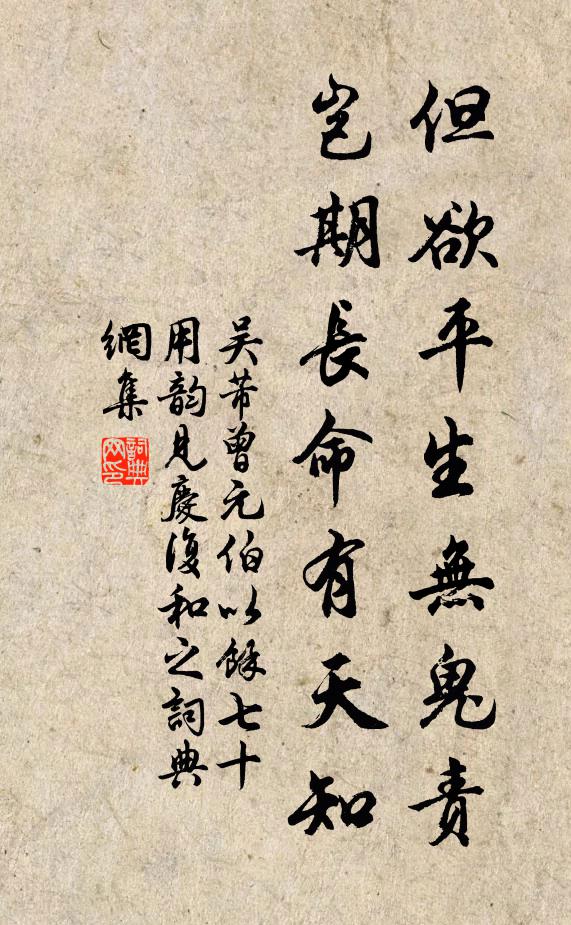 但欲平生無鬼責
豈期長命有天知
吴芾曾元伯以餘七十
用韵見慶復和之詞典
網集
詞典
网印